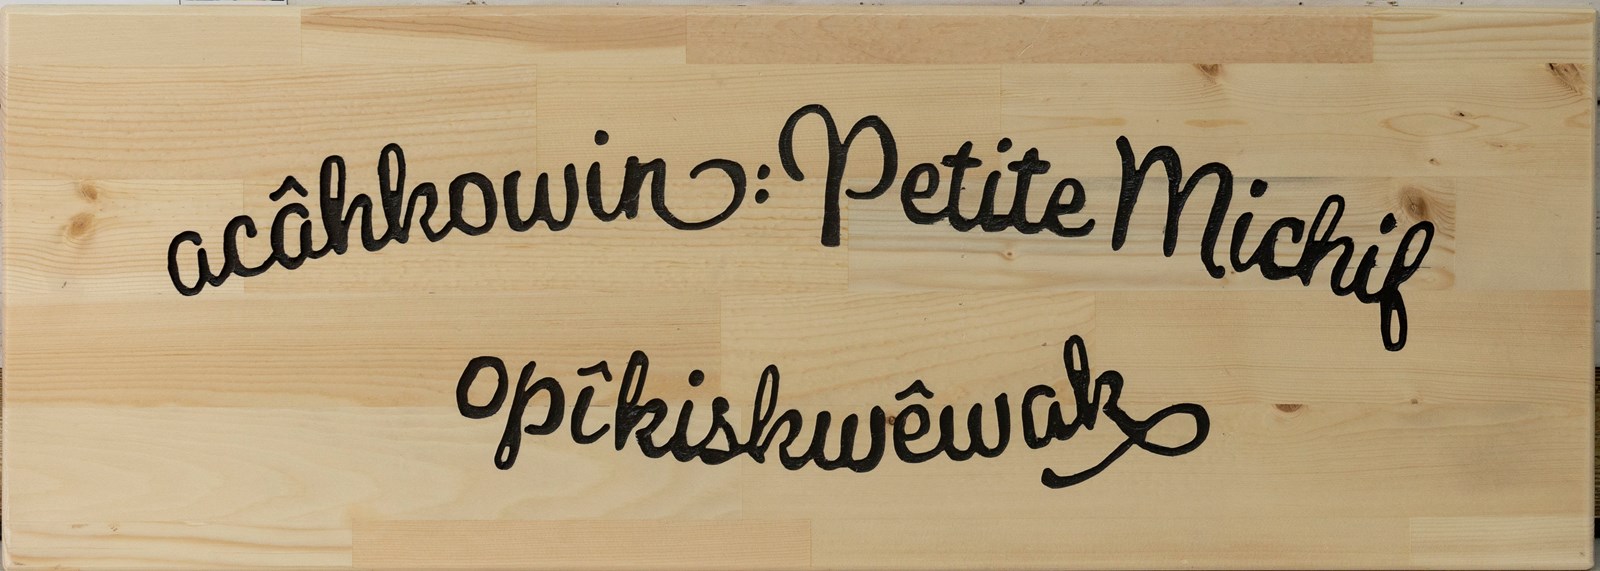 acâhkowin: Petite Michif
opîkiskwêwak